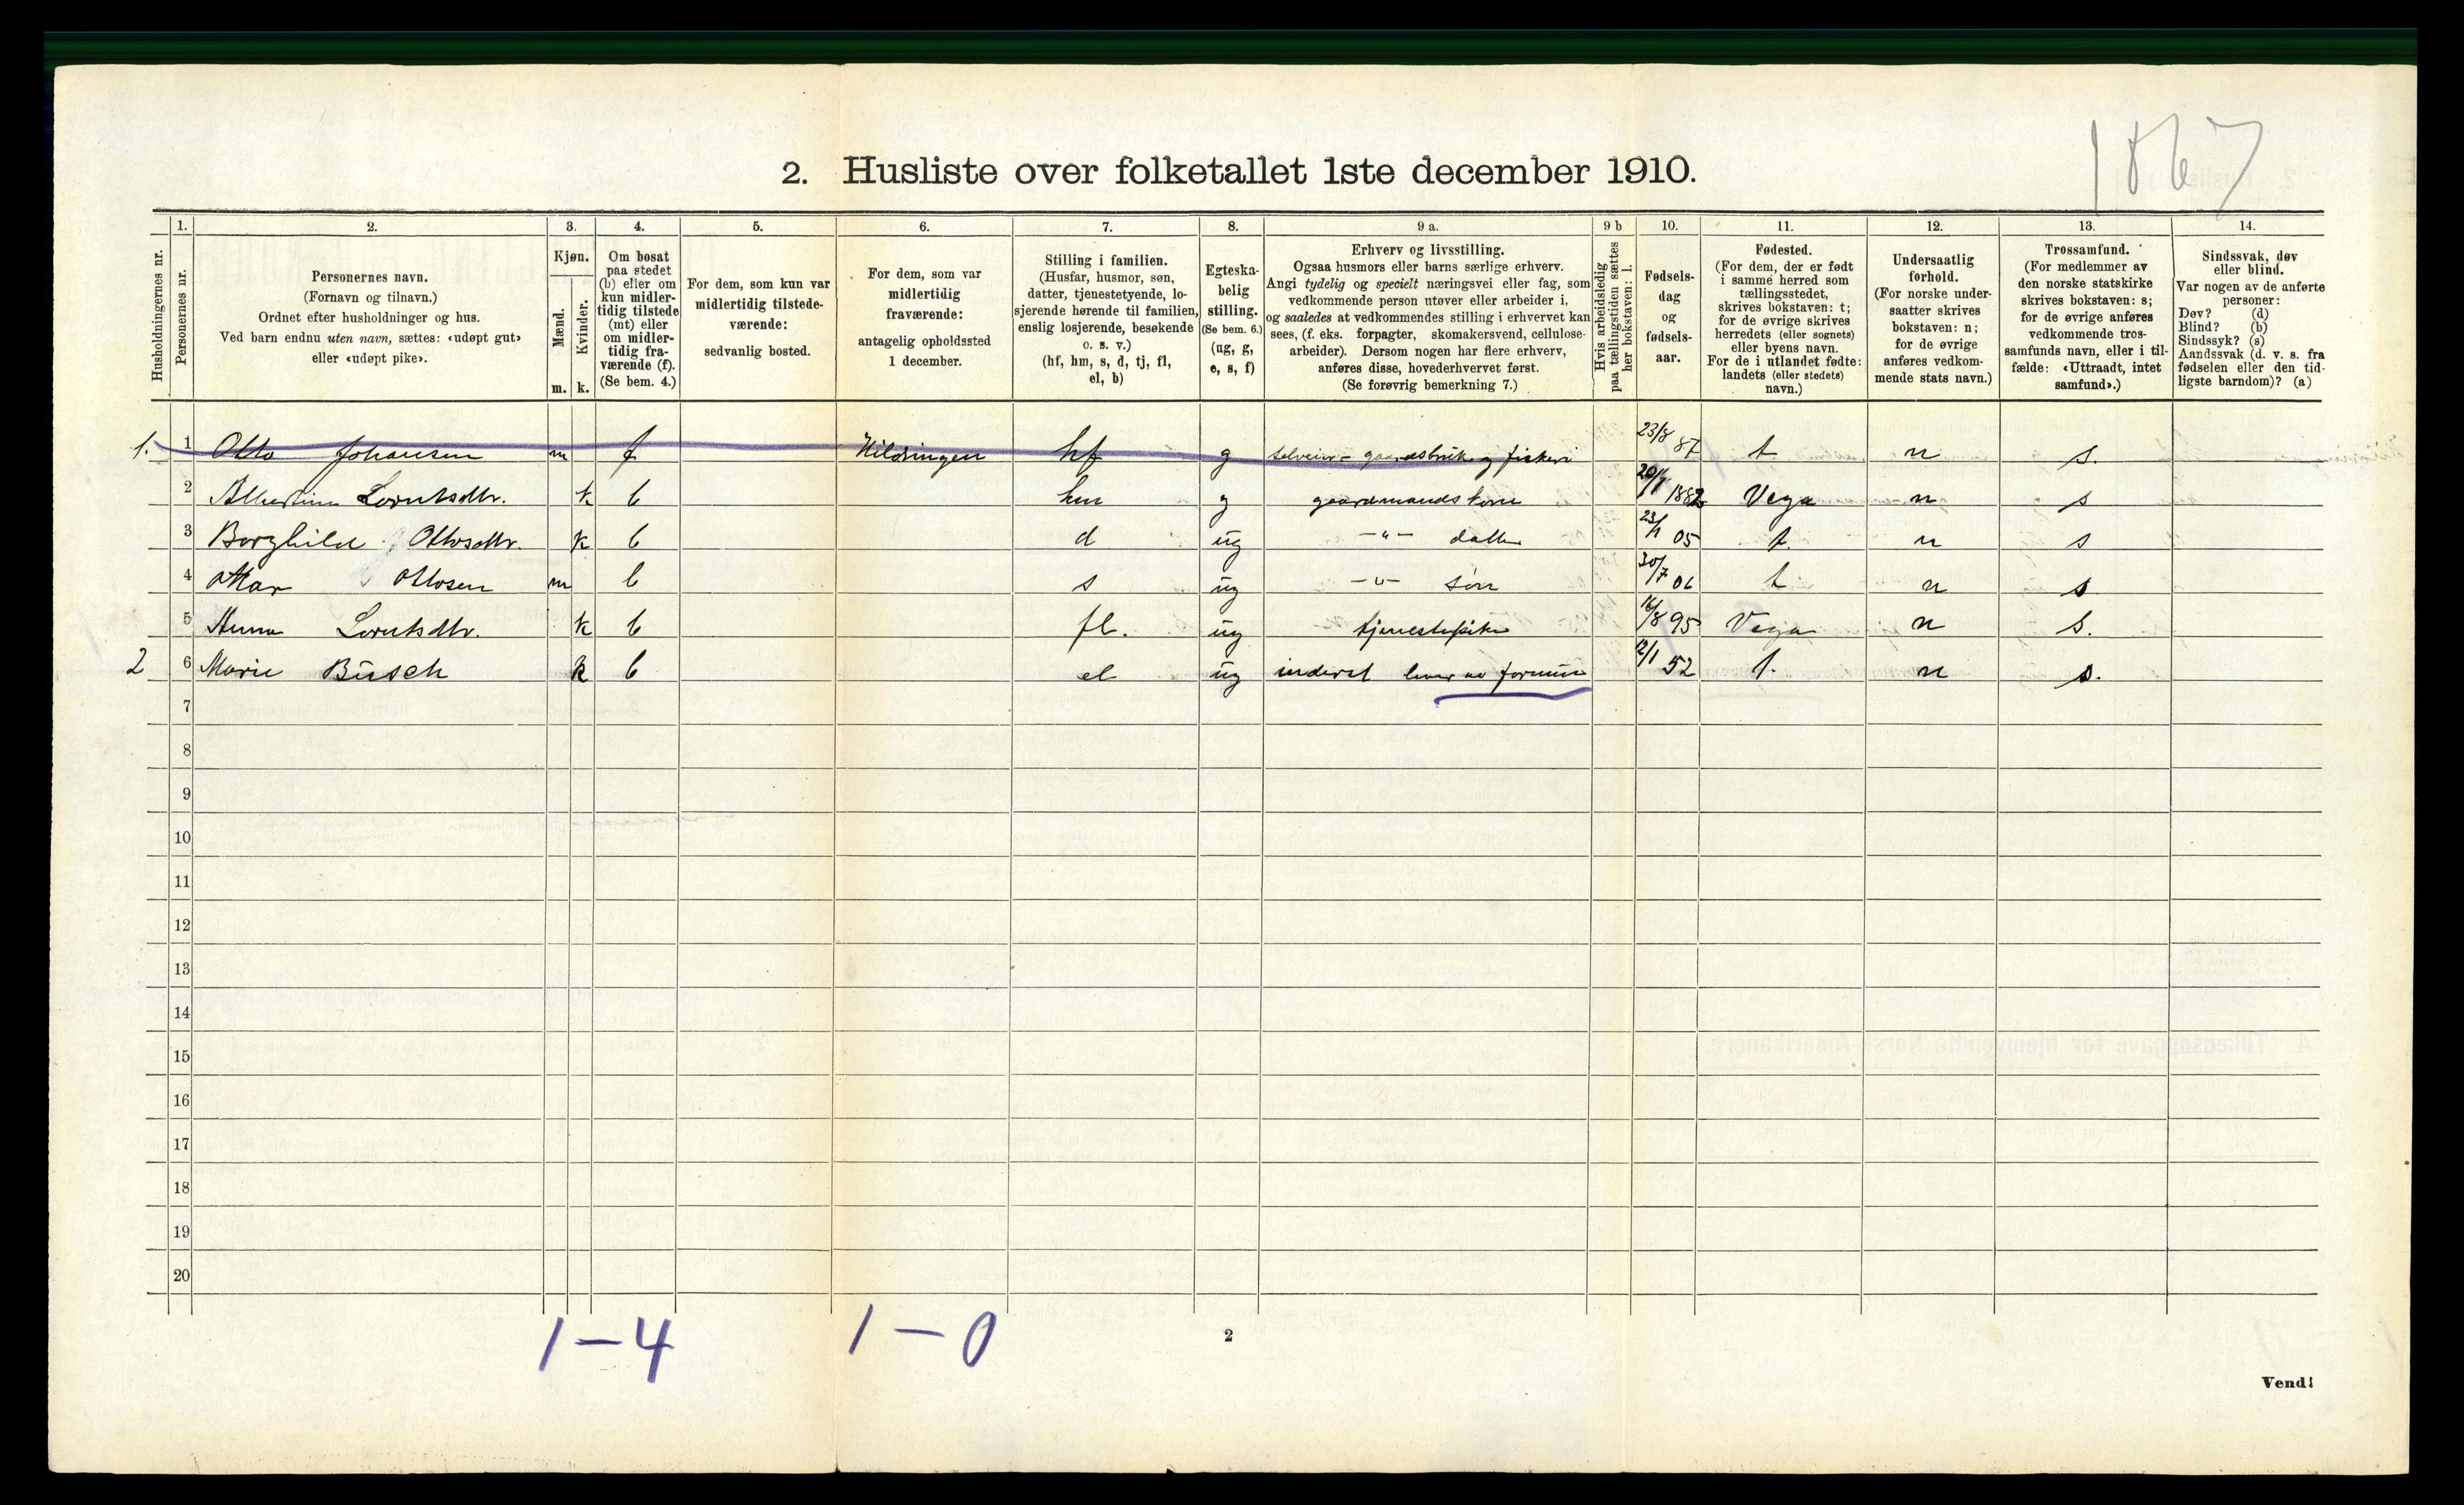 1867
2. Husliste over folketallet 1ste december 1910.
1. 2. 3. 4. 5. 6. 7. 8. 9 a. 9 b 10. 11. 12. 13. 14.
Husholdningernes nr.
Personernes nr.
Personernes navn.
(Fornavn og tilnavn.)
Ordnet efter husholdninger og hus.
Ved barn endnu uten navn, sættes: «udøpt gut»
eller «udøpt pike».
Kjøn.
Mænd.
Kvinder.
m. k.
Om bosat
paa stedet
(b) eller om
kun midler-
tidig tilstede
(mt) eller
om midler-
tidig fra-
værende (f).
(Se bem. 4.)
For dem, som kun var
midlertidig tilstede-
værende:
sedvanlig bosted.
For dem, som var
midlertidig
fraværende:
antagelig opholdssted
1 december.
Stilling i familien.
(Husfar, husmor, søn,
datter, tjenestetyende, lo-
sjerende hørende til familien,
enslig losjerende, besøkende
o. s. v.)
(hf, hm, s, d, tj, fl,
el, b)
Egteska-
belig
stilling.
(Se bem. 6.)
(ug, g,
e, s, f)
Erhverv og livsstilling.
Ogsaa husmors eller barns særlige erhverv.
Angi tydelig og specielt næringsvei eller fag, som
vedkommende person utøver eller arbeider i,
og saaledes at vedkommendes stilling i erhvervet kan
sees, (f. eks. forpagter, skomakersvend, cellulose-
arbeider). Dersom nogen har flere erhverv,
anføres disse, hovederhvervet først.
(Se forøvrig bemerkning 7.)
Hvis arbeidsledig
paa tællingstiden sættes
her bokstaven: l.
Fødsels-
dag
og
fødsels-
aar.
Fødested.
(For dem, der er født
i samme herred som
tællingsstedet,
skrives bokstaven: t;
for de øvrige skrives
herredets (eller sognets)
eller byens navn.
For de i utlandet fødte:
landets (eller stedets)
navn.)
Undersaatlig
forhold.
(For norske under-
saatter skrives
bokstaven: n;
for de øvrige
anføres vedkom-
mende stats navn.)
Trossamfund.
(For medlemmer av
den norske statskirke
skrives bokstaven: s;
for de øvrige anføres
vedkommende tros-
samfunds navn, eller i til-
fælde: «Uttraadt, intet
samfund».)
Sindssvak, døv
eller blind.
Var nogen av de anførte
personer:
Døv? (d)
Blind? (b)
Sindssyk? (s)
Aandssvak (d. v. s. fra
fødselen eller den tid-
ligste barndom)? (a)
1. 1 Otto Johansen m f Hildringen hf g selveier- gaardsbruk og fiskeri 23/8 87 t n s.
2 Albertine Lorntsdtr. k b hm g gaardmands kone 1882 Vega n s
3 Borghild Ottosdtr. k b d ug -"- datter 05 t. n s
4 Ottar Ottosen m b s ug -"- søn 30/7 06 t n s
5 Anna Lorntsdtr. k b fl. ug tjenestepike 16/8 95 Vega n s.
2 6 Marie Büsch k b el ug inderst lever av formue 2/1 52 t. n s.
7
8
9
10
11
12
13
14
15
16
17
18
19
20
1 – 4 1 – 0
2
Vend!